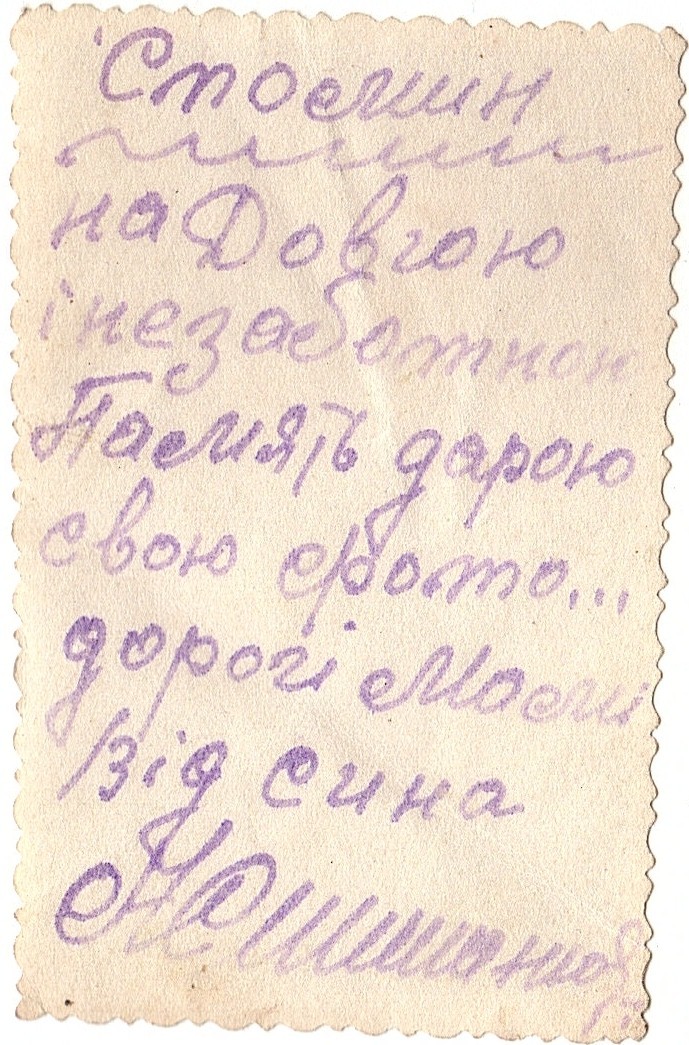 Спосмин
на Довгою
і незаботною
Пасмять дарою
свою фото...
дорогі Маси
Від сина